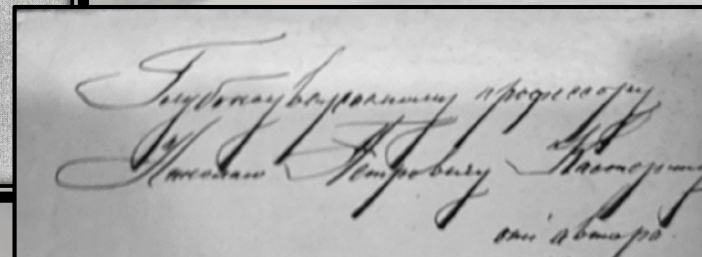 Глубокоуважаемому профессору
Николаю Петровичу
отъ автора.